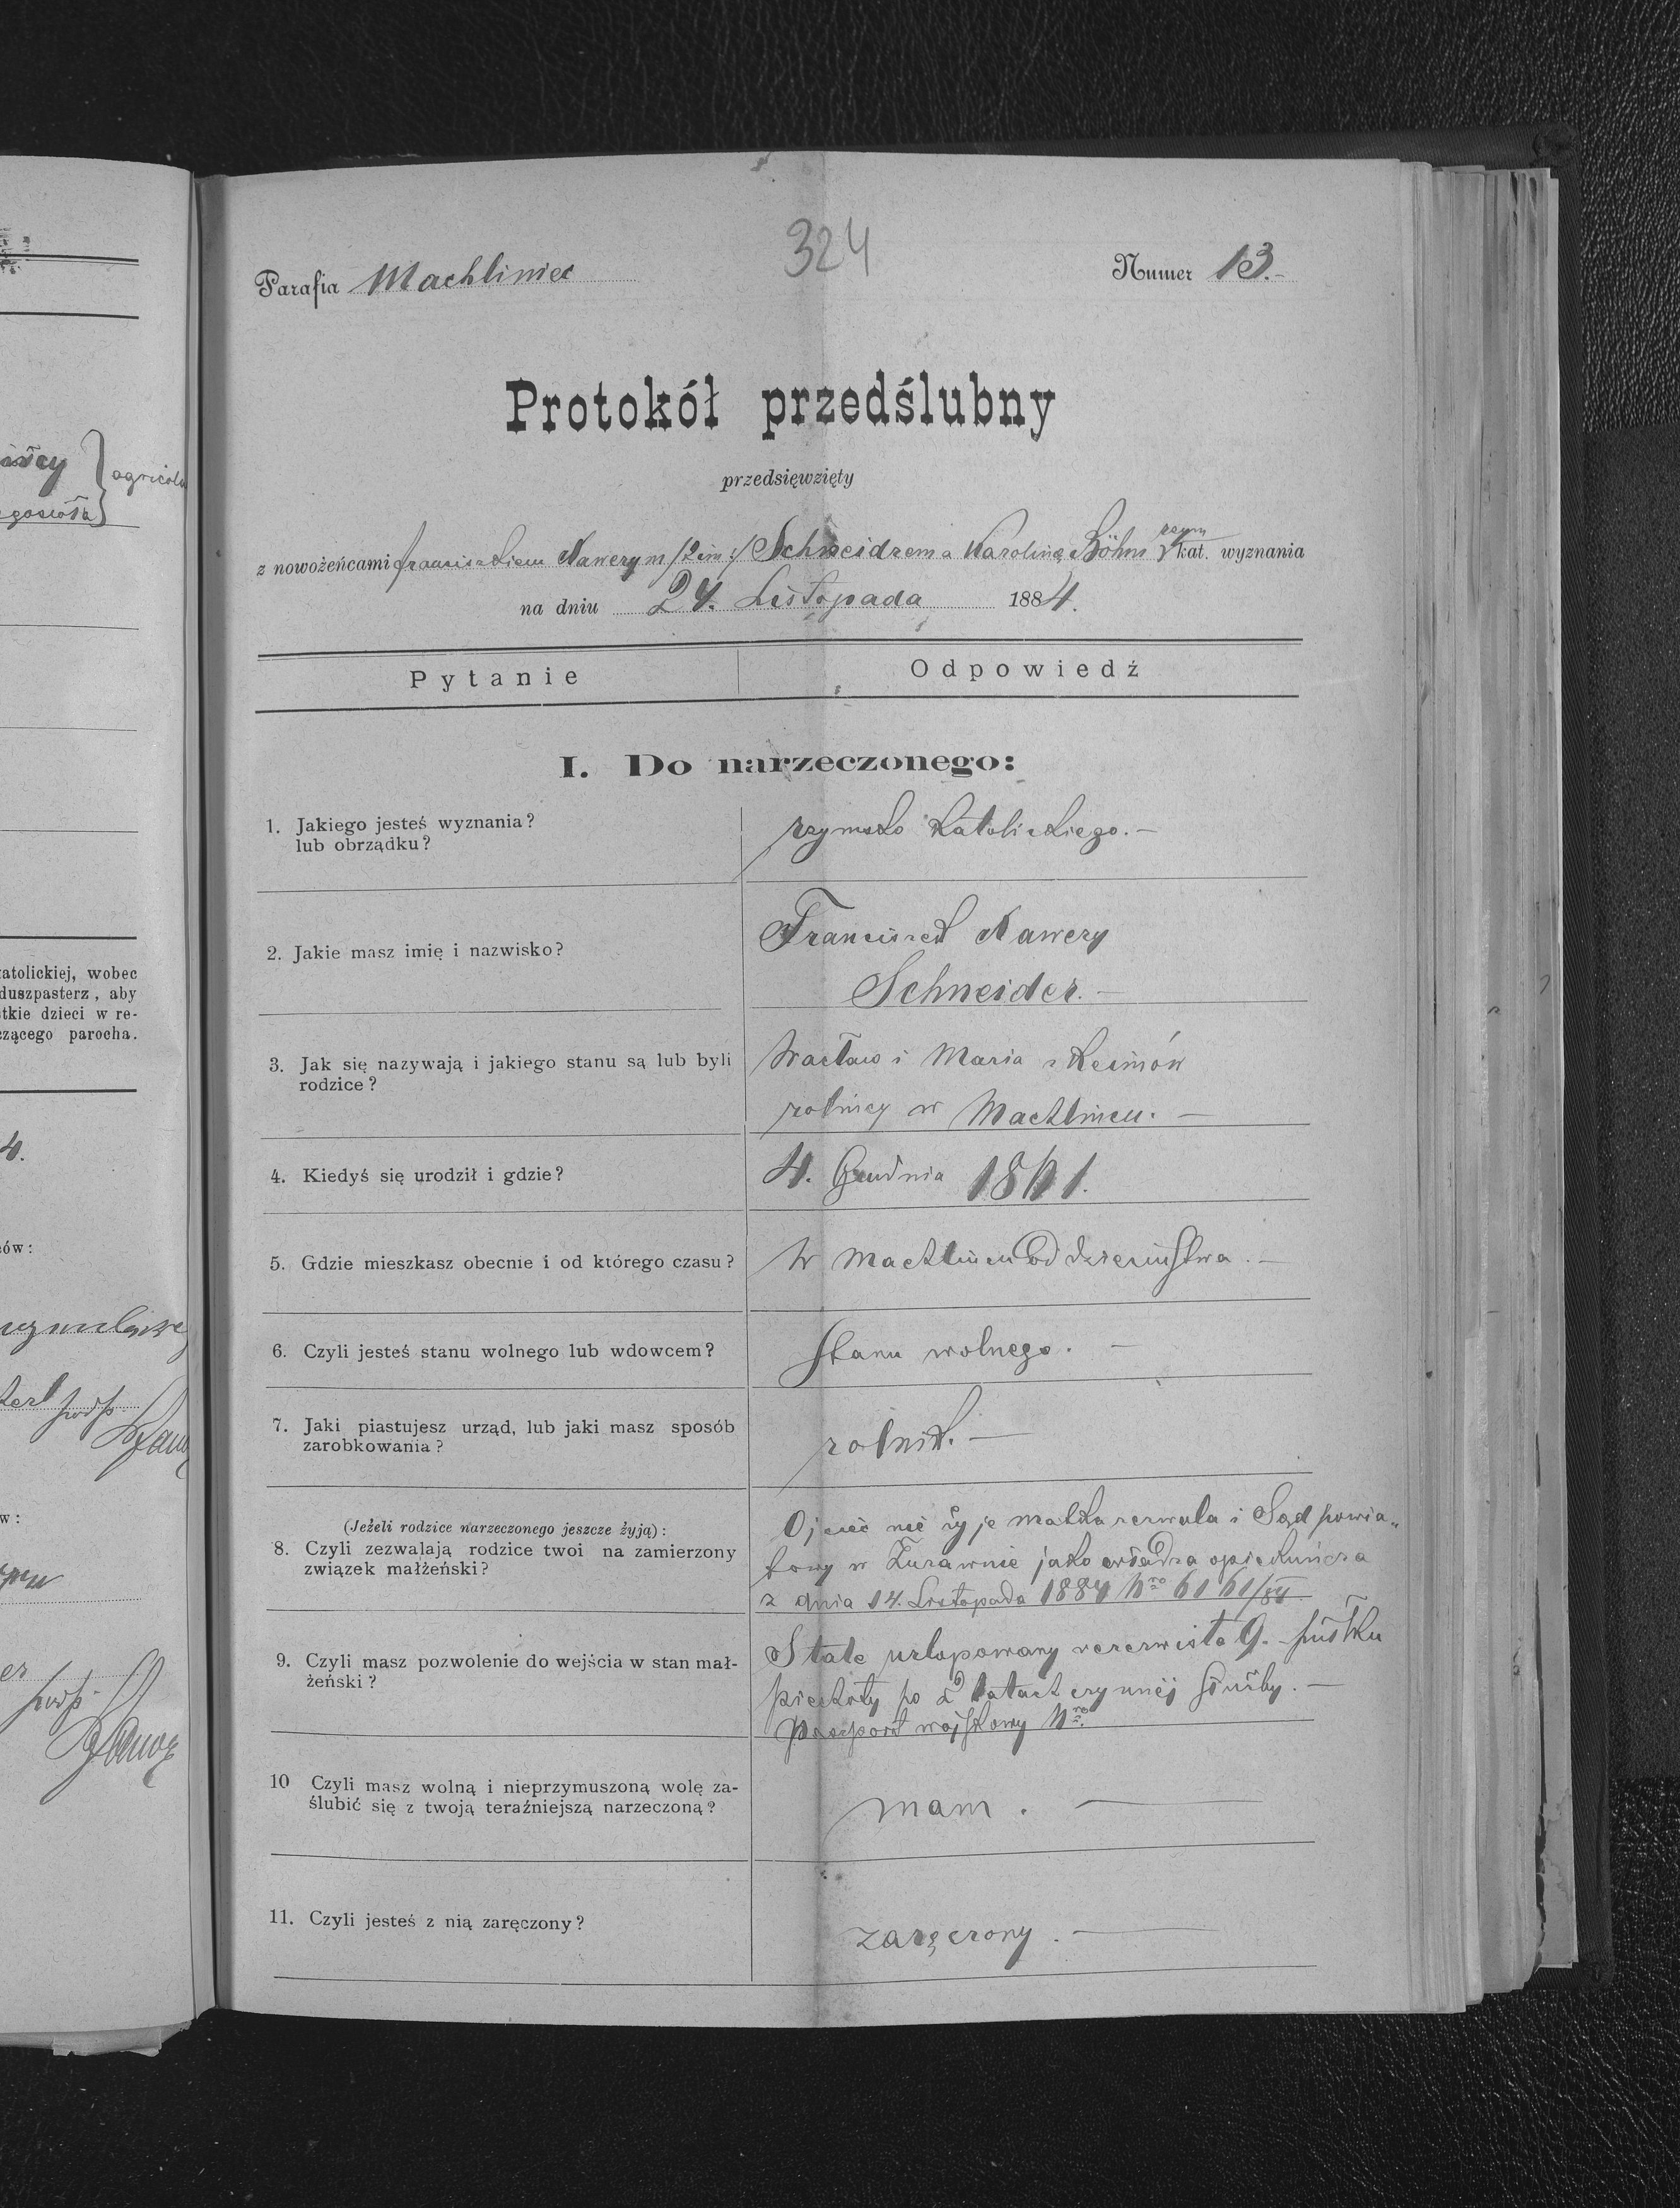 324
Parafia Machliniec
Numer 13.
Protokół przedślubny
przedsięwzięty
z nowożeńcami Franciszkiem Xawerym /2 im:/ Schneidrem a Karoliną Böhm rzym kat. wyznania
na dniu 24. Listopada 1884.
Pytanie Odpowiedź
I. Do narzeczonego:
1. Jakiego jesteś wyznania?
lub obrządku?
rzymsko katolickiego. —
2. Jakie masz imię i nazwisko?
Franciszek Xawery
Schneider. —
3. Jak się nazywają i jakiego stanu są lub byli
rodzice?
Wacław i Maria z
rolnicy w Machlincu. —
4. Kiedyś się urodził i gdzie?
4. Grudnia 1861.
5. Gdzie mieszkasz obecnie i od którego czasu?
W Machlincu od dzieciństwa. —
6. Czyli jesteś stanu wolnego lub wdowcem?
Stanu wolnego. —
7. Jaki piastujesz urząd, lub jaki masz sposób
zarobkowania?
rolnik. —
(Jeżeli rodzice narzeczonego jeszcze żyją):
8. Czyli zezwalają rodzice twoi na zamierzony
związek małżeński?
Ojciec nie żyje matka zezwala i Sąd powia„
towy w Żurawnie jako władza opiekuńcza
z dnia 14. Listopada 1884 Nro 6161/84
9. Czyli masz pozwolenie do wejścia w stan mał-
żeński?
Stale urlopowany rezerwista 9. pułku
piechoty po 2 latach czynnej służby. —
Paszport wojskowy Nro.
10 Czyli masz wolną i nieprzymuszoną wolę za-
ślubić się z twoją teraźniejszą narzeczoną?
mam. —
11. Czyli jesteś z nią zaręczony?
zaręczony. —
agricola
atolickiej, wobec
duszpasterz, aby
tkie dzieci w re-
czącego parocha.
4.
ów:
w: